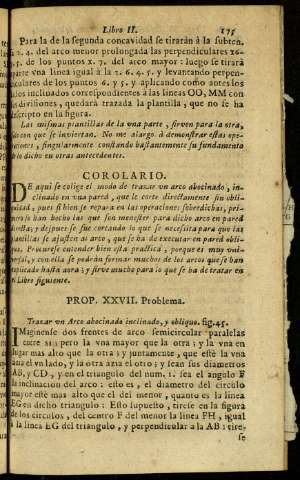 Libro II. 175
Para la de la segunda concavidad se tirarán à la subten.
2. 4. del arco menor prolongada las perpendiculares 26-
5. de los puntos x. 7. del arco mayor: luego se tirará
parte vna linea igual à la 2. 6. 4. 5. y levantando perpen-
culares de los puntos 6. y 5. y aplicando como antes los
los inclinados correspondientes à las lineas OO, MM con
divisiones, quedará trazada la plantilla, que no se ha
descripto en la figura.
Las mismas plantillas de la vna parte, sirven para la otra,
con que se inviertan. No me alargo à demonstrar estas ope-
ciones, singularmente constando bastantemente su fundamento
lo dicho en otras antecedentes.
COROLARIO.
DE aqui se colige el modo de trazar vn arco abocinado, in-
clinado en vna pared, que le corte directamente sin obli-
cidad, pues si bien se repara en las operaciones sobredichas, pri-
ro se han hecho las que son menester para dicho arco en pared
directa; y despues se fue cortando lo que se necessita para que las
plantillas se ajusten al arco, que se ha de executar en pared obli-
qua. Procurese entender bien esta practica, porque es muy vni-
versal, y con ella se podrán formar muchos de los arcos que se han
explicado hasta aora; y sirve mucho para lo que se ha de tratar en
el Libro siguiente.
PROP. XXVII. Problema.
Trazar vn Arco abocinado inclinado, y obliquo. fig.45.
IMaginense dos frentes de arco semicircular paralelas
entre si: pero la vna mayor que la otra; y la vna en
lugar mas alto que la otra; y juntamente, que esté la vna
àzia el vn lado, y la otra àzia el otro; y sean sus diametros
AB, y CD, y en el triangulo del num. 1. sea el angulo F
la inclinacion del arco: esto es, el diametro del circulo
mayor esté mas alto que el del menor, quanto es la linea
EG en dicho triangulo: Esto supuesto, tirese en la figura
de los circulos, del centro F del menor la linea FH, igual
à la linea EG del triangulo, y perpendicular à la AB: tire-
se